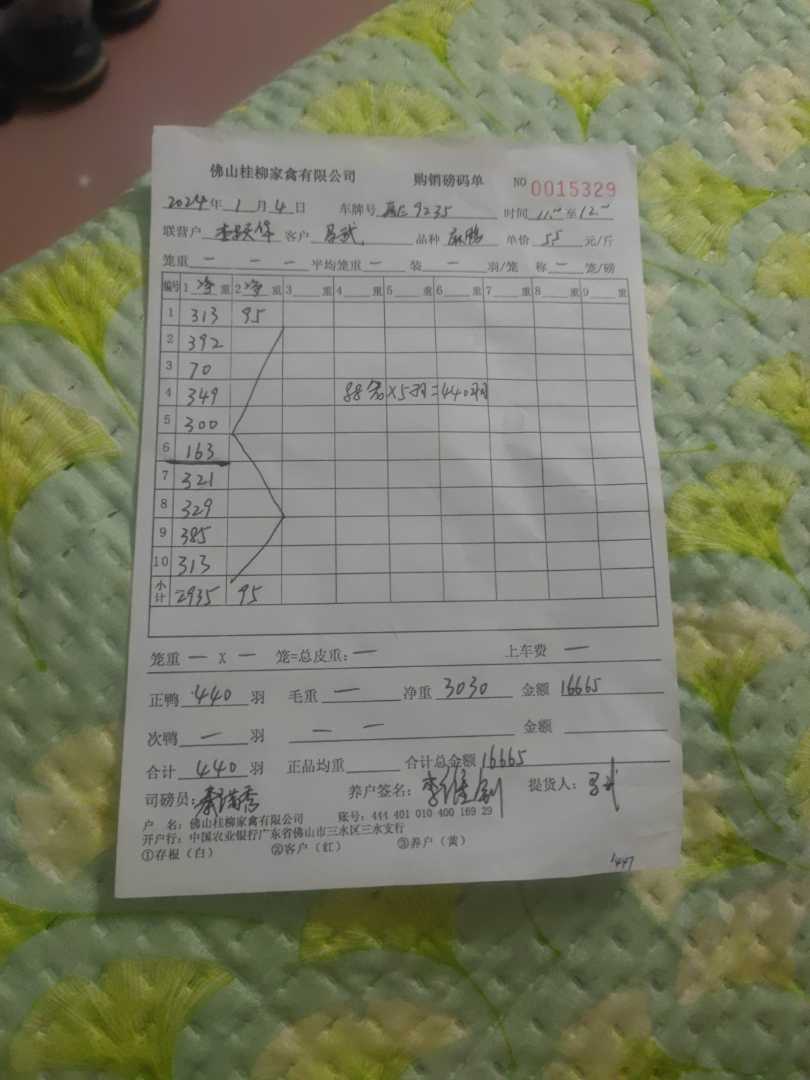 佛山桂柳家禽有限公司 购销磅码单 NO 0015329
2024年 1月 4日 车牌号 9235 时间 11.00至12.00
联营户 客户 吕武 品种 麻鸭 单价 5.5 元/斤
笼重 — — — 平均笼重 — 装 — 羽/笼 称 — 笼/磅
编号 1 净 重 2 净 重 3 重 4 重 5 重 6 重 7 重 8 重 9 重
1 313 95
2 392
3 70
4 349 88笼×5羽=440羽
5 300
6 163
7 321
8 329
9 385
10 313
小计 2935 95
笼重 — X — 笼=总皮重: — 上车费 —
正鸭 440 羽 毛重 — 净重 3030 金额 16665
次鸭 — 羽 — — 金额
合计 440 羽 正品均重 合计总金额 16665
司磅员: 养户签名: 提货人: 吕武
户 名: 佛山桂柳家禽有限公司 账号: 444 401 010 400 169 29
开户行: 中国农业银行广东省佛山市三水区三水支行
①存根(白) ②客户(红) ③养户(黄)
1447